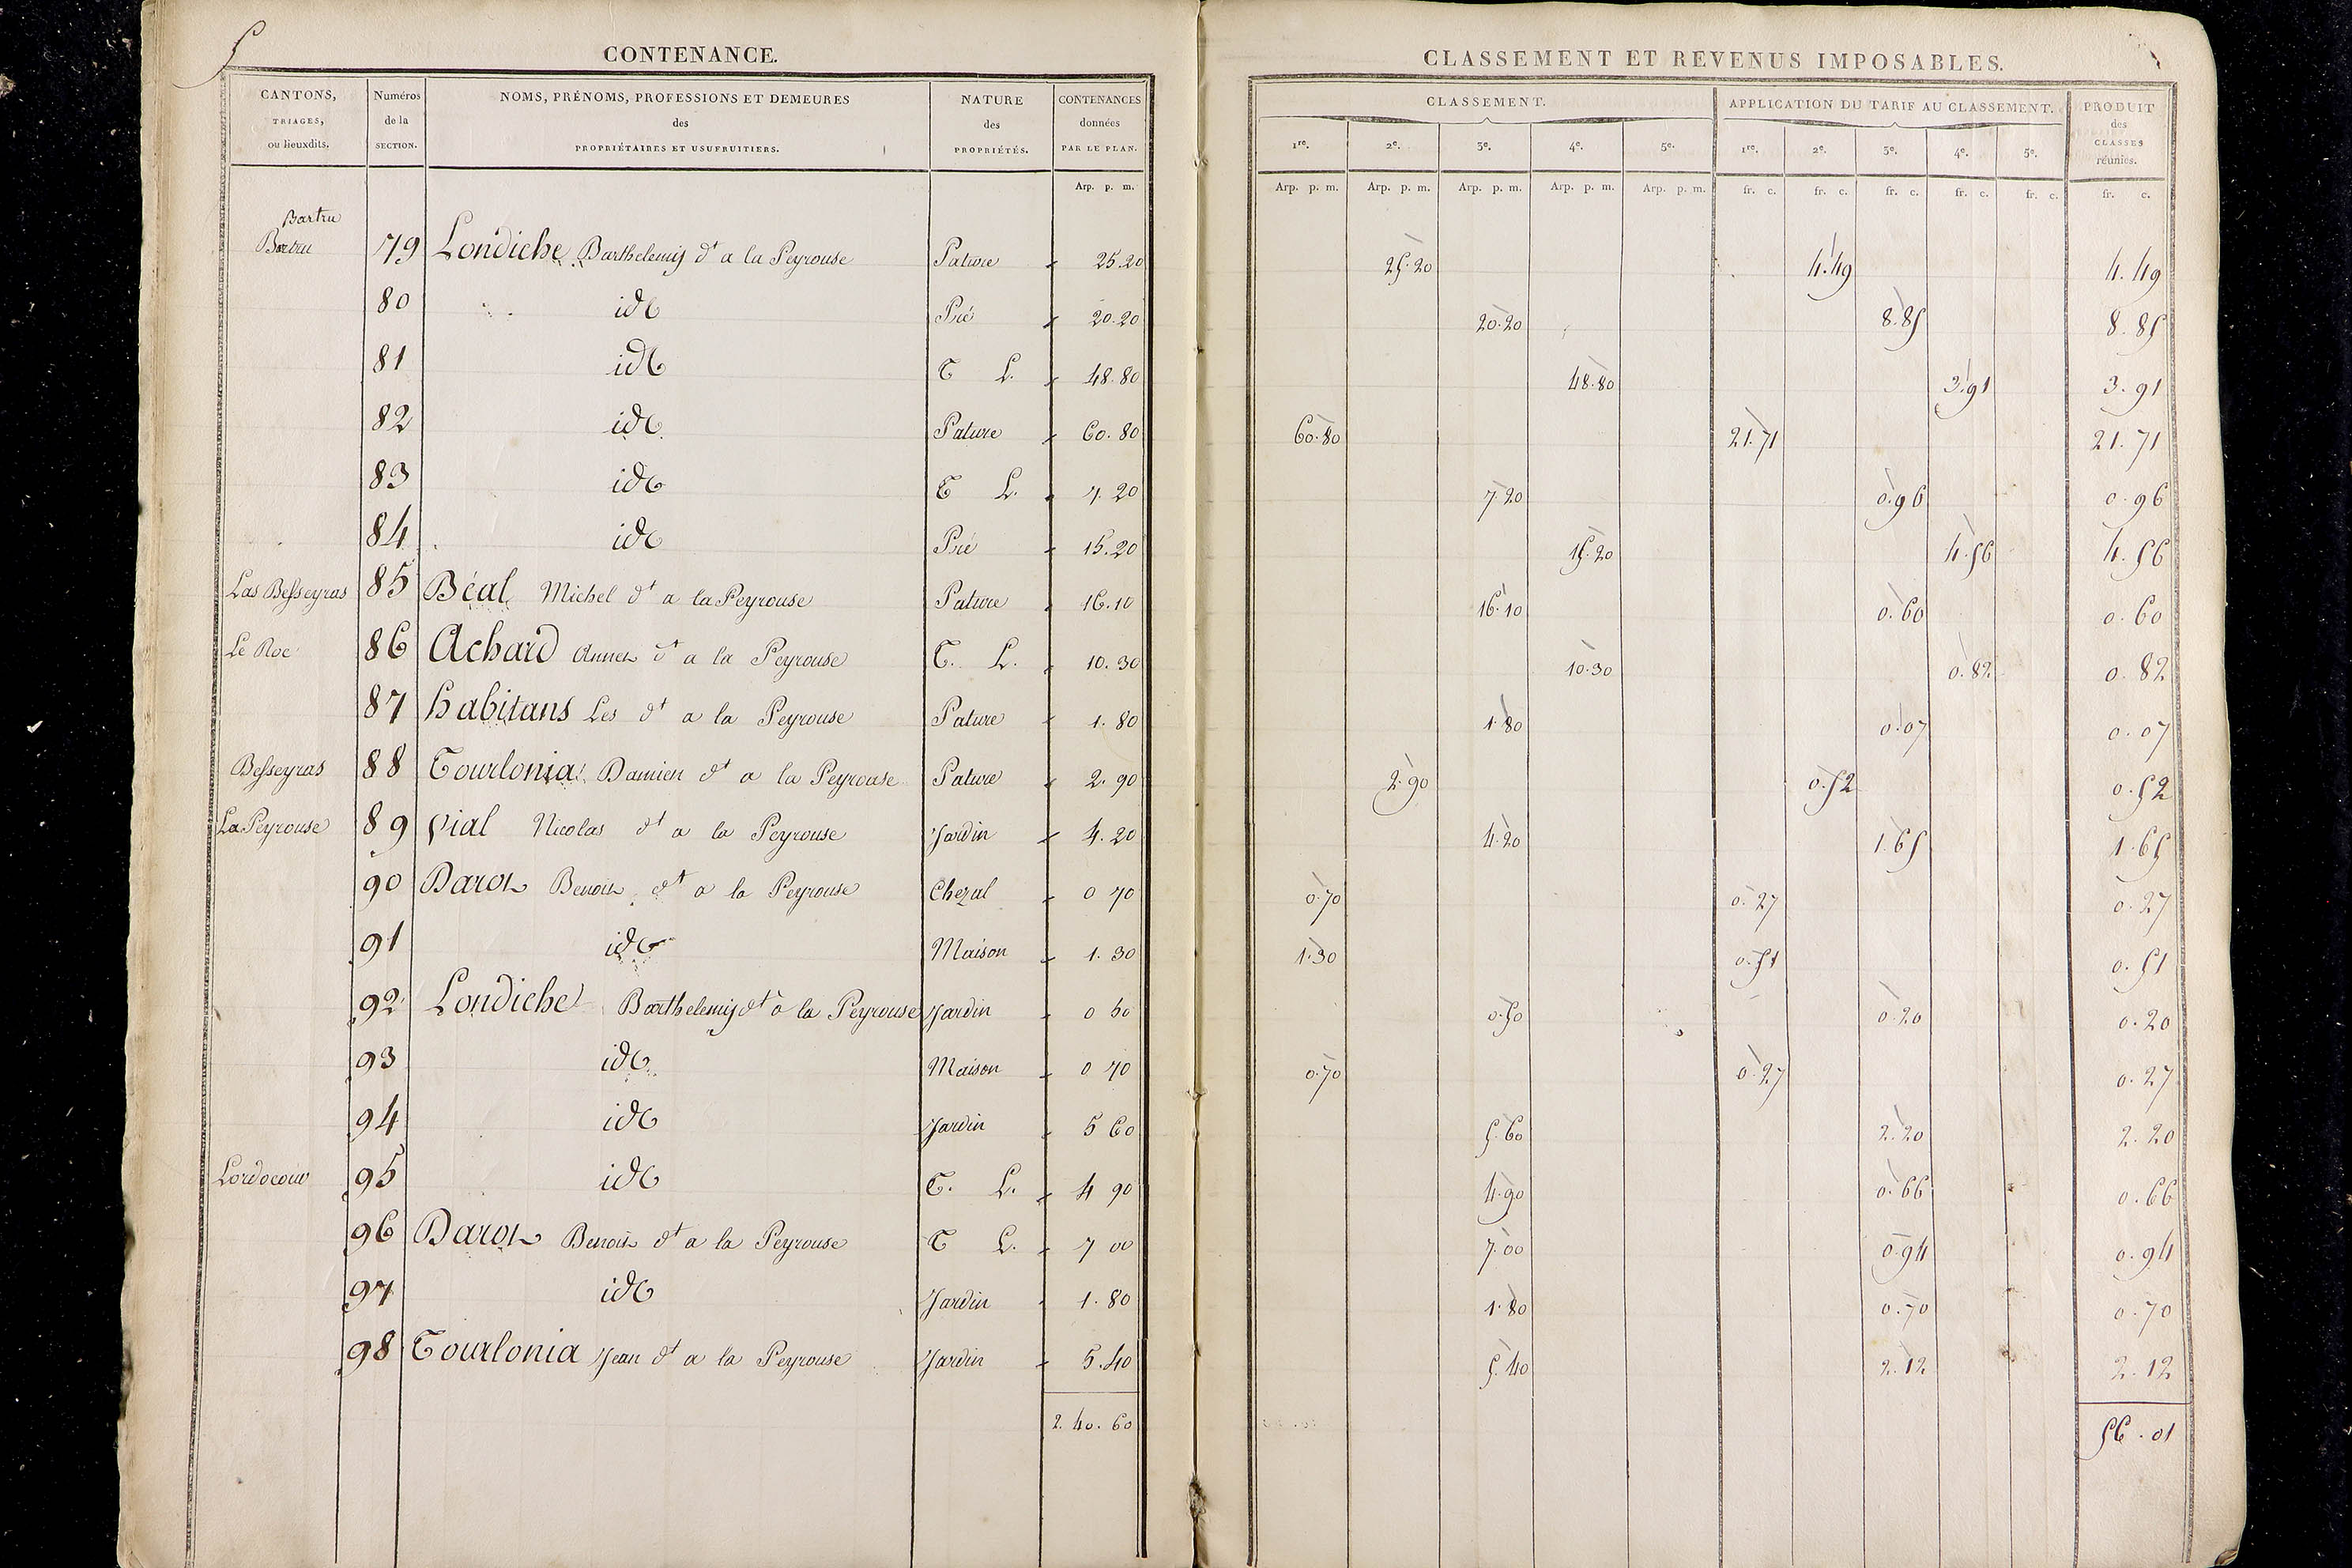 5
CONTENANCE.
CLASSEMENT ET REVENUS IMPOSABLES.
CANTONS, TRIAGES, ou lieuxdits. Numéros de la SECTION. NOMS, PRÉNOMS, PROFESSIONS ET DEMEURES des PROPRIÉTAIRES ET USUFRUITIERS. NATURE des PROPRIÉTÉS. CONTENANCES données PAR LE PLAN. CLASSEMENT. APPLICATION DU TARIF AU CLASSEMENT. PRODUIT des CLASSES réunies.
1re. 2e. 3e. 4e. 5e. 1re. 2e. 3e. 4e. 5e.
Arp. p. m. Arp. p. m. Arp. p. m. Arp. p. m. Arp. p. m. Arp. p. m. fr. c. fr. c. fr. c. fr. c. fr. c. fr. c.
Bartru
Bartru 79 Londiche Barthelemy dt a la Peyrouse Pature 25.20 25.20 4.49 4.49
80 id Pré 20.20 20.20 8.85 8.85
81 id T L. 48.80 48.80 3.91 3.91
82 id Pature 60.80 60.80 21.71 21.71
83 id T L. 7.20 7.20 0.96 0.96
84 id Pré 15.20 15.20 4.56 4.56
Las Besseyras 85 Béal Michel dt a la Peyrouse Pature 16.10 16.10 0.60 0.60
Le Roc 86 Achard Annet dt a la Peyrouse T. L. 10.30 10.30 0.82 0.82
87 habitans Les dt a la Peyrouse Pature 1.80 1.80 0.07 0.07
Besseyras 88 Tourlonia Damien dt a la Peyrouse Pature 2.90 2.90 0.52 0.52
La Peyrouse 89 Vial Nicolas dt a la Peyrouse Jardin 4.20 4.20 1.65 1.65
90 Darot Benoit dt a la Peyrouse Chezal 0 70 0.70 0.27 0.27
91 id Maison 1.30 1.30 0.51 0.51
92 Londiche Barthelemy dt a la Peyrouse Jardin 0 50 0.50 0.20 0.20
93 id Maison 0 70 0.70 0.27 0.27
94 id Jardin 5 60 5.60 2.20 2.20
Lordocour 95 id T. L. 4 90 4.90 0.66 0.66
96 Darot Benoit dt a la Peyrouse T L. 7 00 7.00 0.94 0.94
97 id Jardin 1.80 1.80 0.70 0.70
98 Tourlonia Jean dt a la Peyrouse Jardin 5.40 5.40 2.12 2.12
2.40.60 56.01